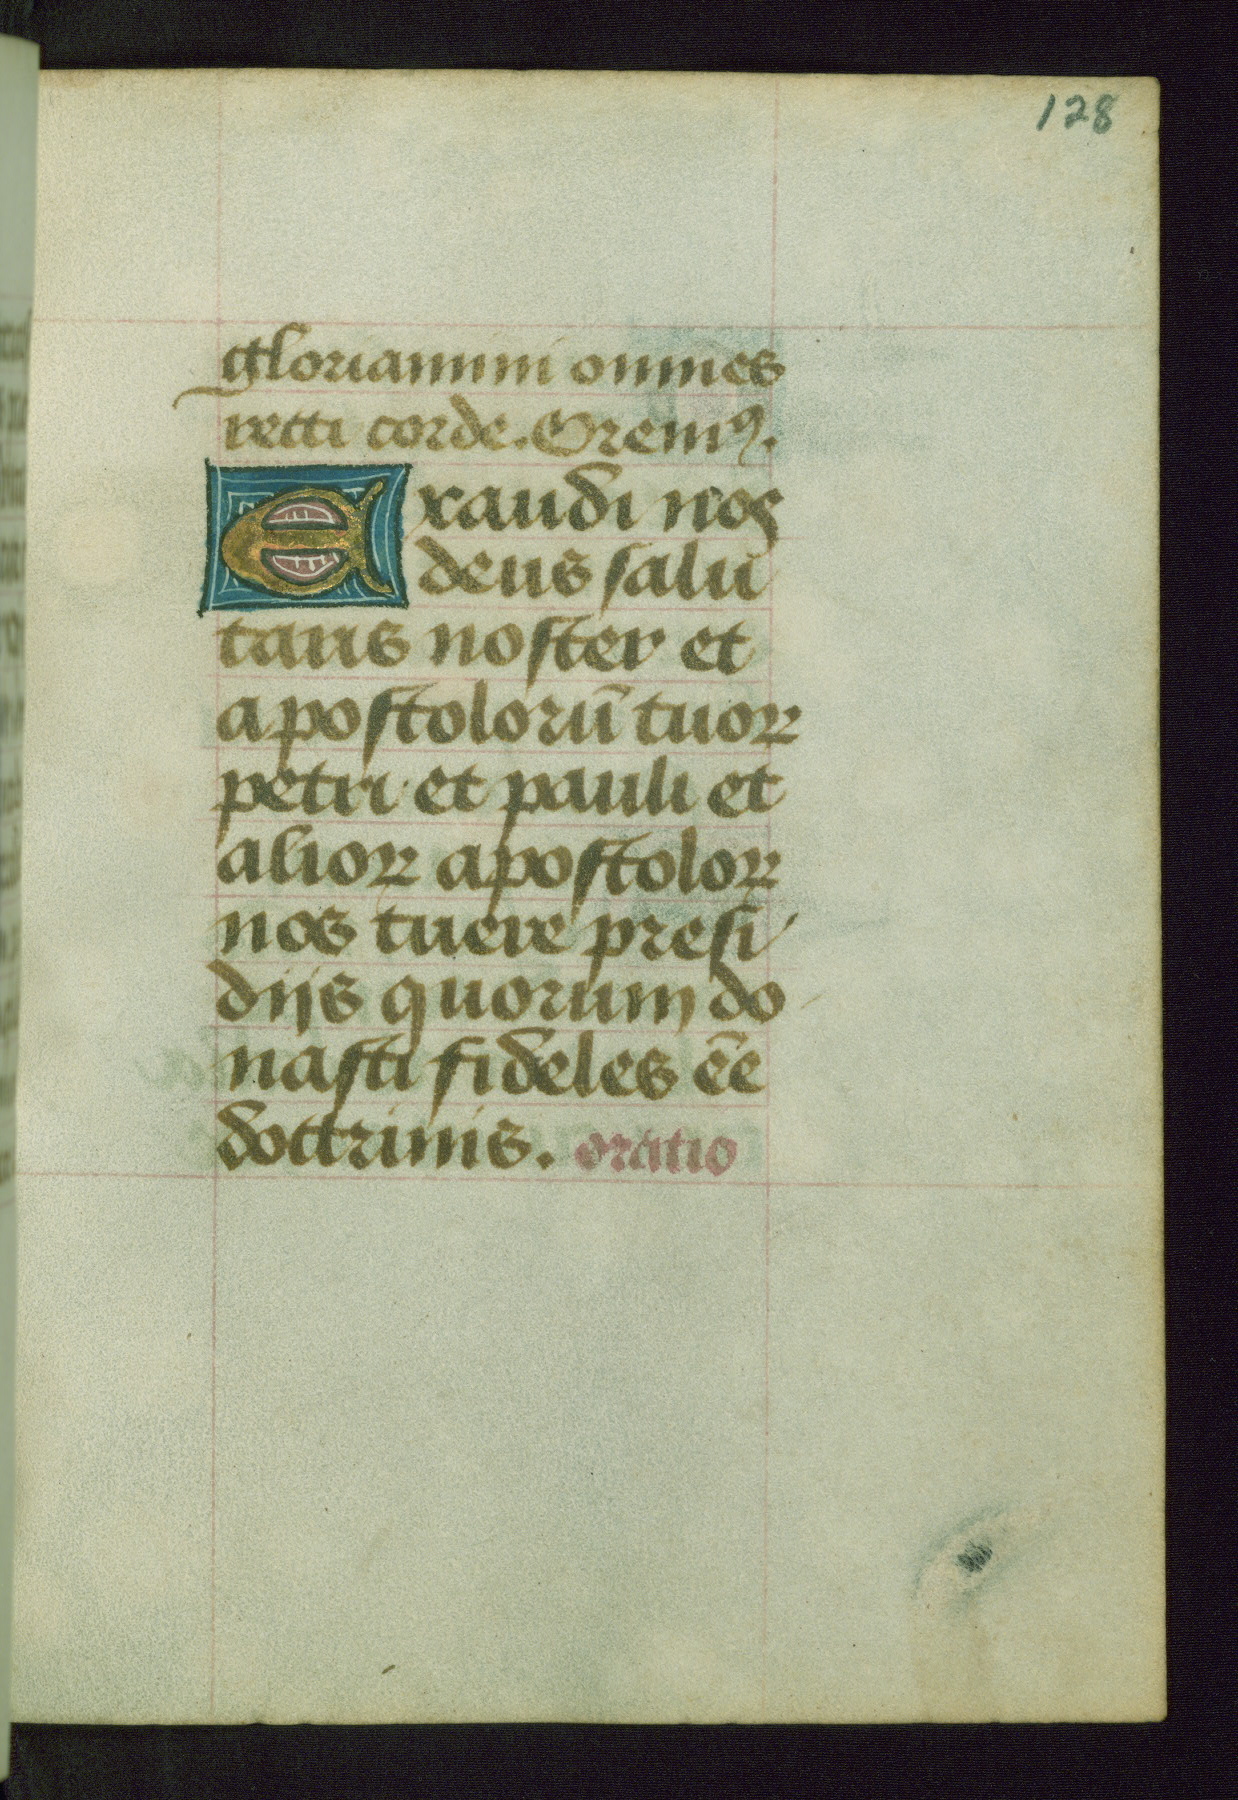 128
gloriamini omnes
recti corde. Oremꝰ.
Exaudi nos
deus salu
taris noster et
apostolorū tuoꝝ
petri et pauli et
alioꝝ apostoloꝝ
nos tuere presi
diis quorum do
nasti fideles ēe
doctrinis. oratio